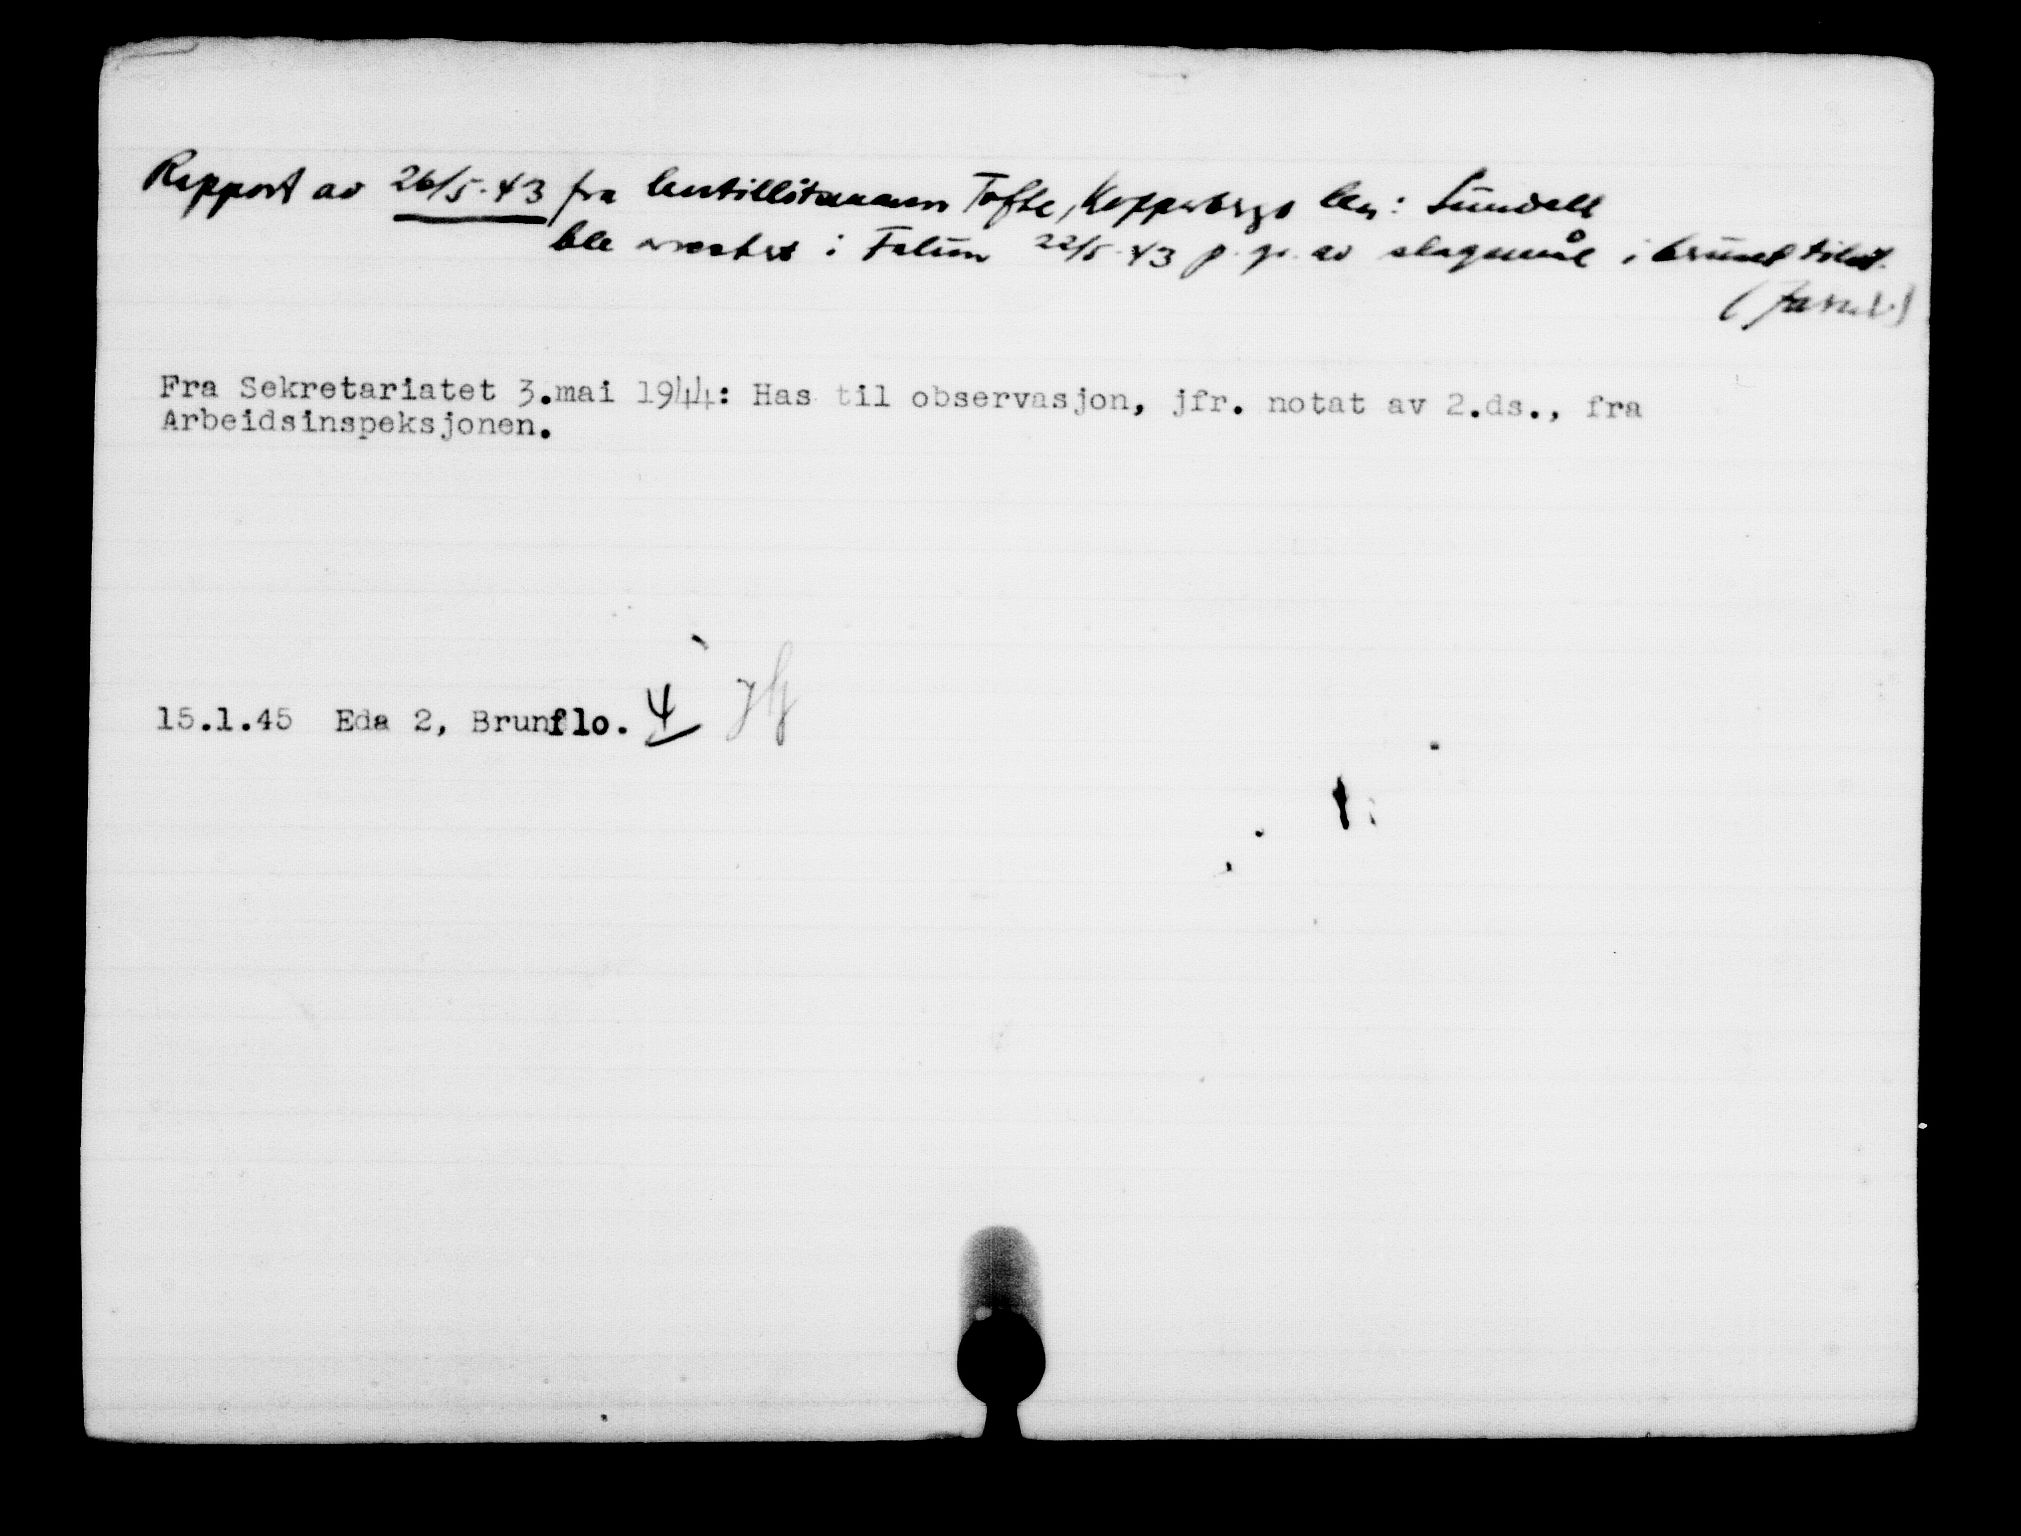 Rapport av 26/5-43 fra lentillitsmann Tofte, Kopparbergs len: Sundell
ble arrestert i Falun 22/5-43 p.gr. av slagsmål i beruset tilst.
Fra Sekretariatet 3.mai 1944: Has til observasjon, jfr. notat av 2.ds., fra
Arbeidsinspeksjonen.
15.1.45 Eda 2, Brunflo.